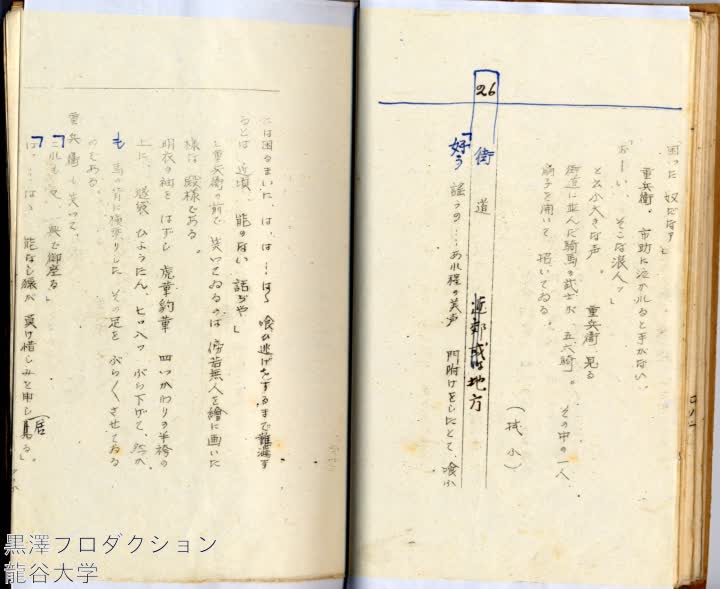 困った奴だなす」
重兵衛。市助に泣かれると手がない。
「おーい、そこな浪人ッ」
と云ふ大きな声。 重兵衛、見る
街道に並んだ騎馬の武士が 五六騎。 その中の一人
扇子を開いて 招いてゐる。
(拭 小)
26
街道 近郊或は地方
「好う 謡うの……あれ程の美声 門附けをしたとて、喰ふ
には困るまいに、は、は……はゝ 喰ひ逃げをするまで難渋す
るとは 近頃 能のない 話ぢや」
と重兵衛の前で 笑つてゐるのは 傍若無人を繪に画いた
様な 殿様である。
明衣の袖を はずし 虎革豹革 四いつかわりの半袴の
上に、 ひようたん、 ぶら下げて、
も 馬の背に横乗りした その足を ぶら〱させてゐる
のである。
重兵衛も笑つて、
「これも、又、 興で御座る」
「は、……はゝ 能なし猿が 負け惜しみを申し居る」
黒澤プロダクション
龍谷大学